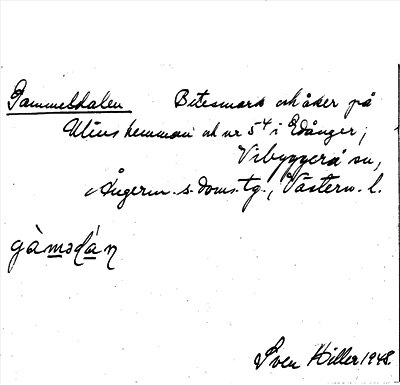 Gammeldalen Betesmark och åker på
Ulius hemman och nr 5⁴ i Edånger,
Vibyggerå sn,
Ångerm. s. doms. tg., Västern. l.
gàmədán
Sven Hiller 1948.